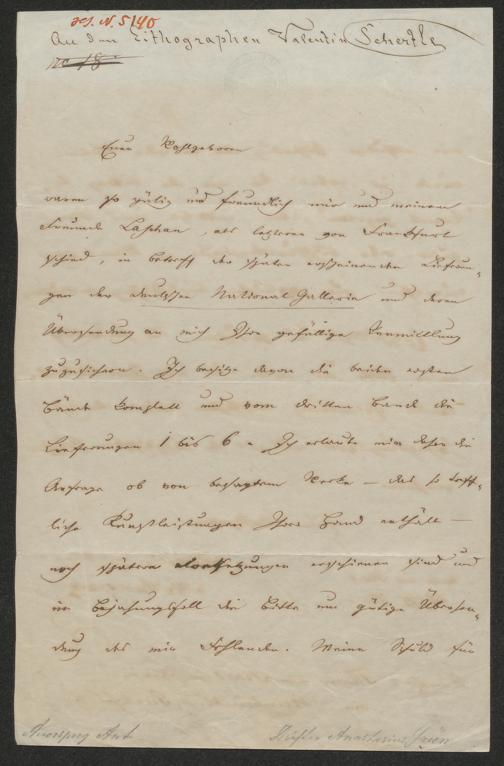 Jos. N. 5140
An den Lithographen Valentin Schertle
No 18
Euer Wohlgeboren
waren so gütig und freundlich mir und meinem
Freunde Laschan, als letzterer von Frankfurt
schied, in betreff der später erscheinenden Lieferun-
gen der deutschen National Gallerie und deren
Übersendung an mich Ihre gefällige Vermittlung
zuzusichern. Ich besitze davon die beiden ersten
Bände komplett und vom dritten Bande die
Lieferungen 1 bis 6. Ich erlaube mir daher die
Anfrage ob von besagtem Werke — das so treff-
liche Kunstleistungen Ihrer Hand enthält —
noch spätere Fortsetzungen erschienen sind und
im Bejahungsfall die Bitte um gütige Übersen-
dung des mir Fehlenden. Meine Schuld für
Auersperg Ant
Anastasius Grün